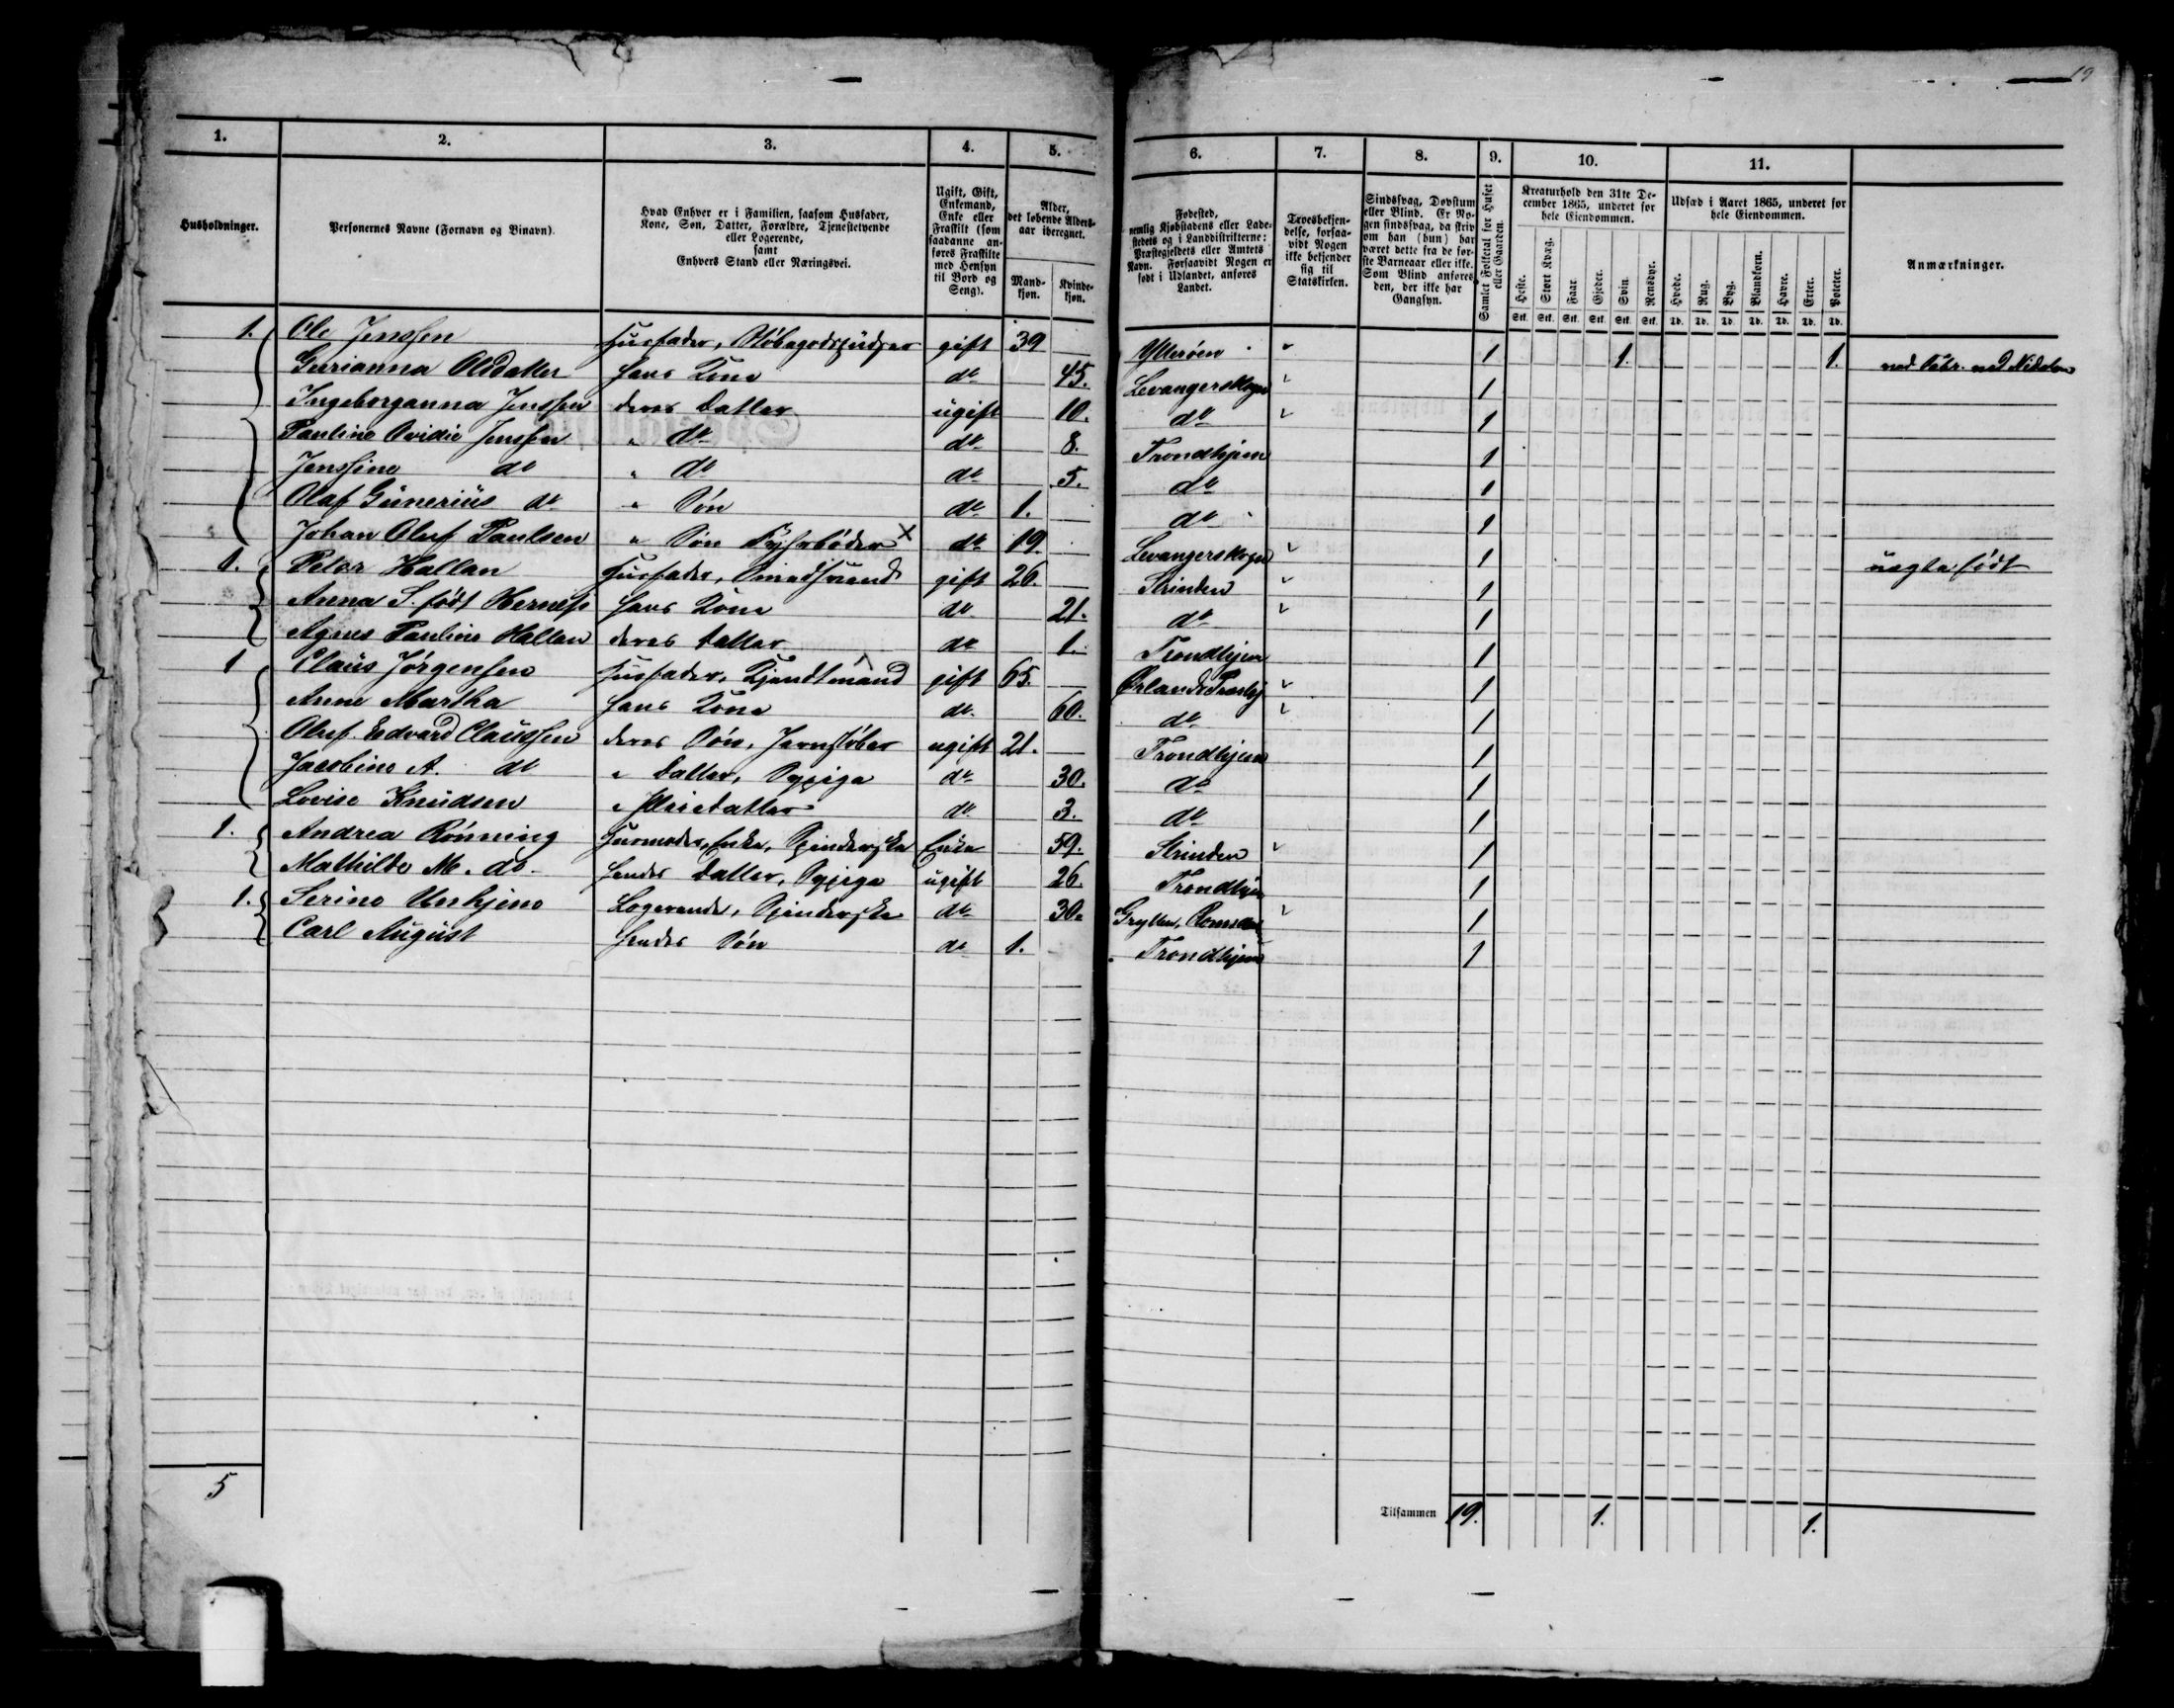 19
1. 2. 3. 4. 5. 6. 7. 8. 9. 10. 11.
Husholdninger.
Personernes Navne (Fornavn og Binavn).
Hvad Enhver er i Familien, saasom Husfader,
Kone, Søn, Datter, Forældre, Tjenestetyende
eller Logerende,
samt
Enhvers Stand eller Næringsvei.
Ugift, Gift,
Enkemand,
Enke eller
Fraskilt (som
saadanne an-
føres Fraskilte
med Hensyn
til Bord og
Seng).
Alder,
det løbende Alders-
aar iberegnet.
Mand-
kjøn.
Kvinde-
kjøn.
Fødested,
nemlig Kjøbstadens eller Lade-
stedets og i Landdistrikterne:
Præstegjeldets eller Amtets
Navn. Forsaavidt Nogen er
født i Udlandet, anføres
Landet.
Troesbekjen-
delse, forsaa-
vidt Nogen
ikke bekjender
sig til
Statskirken.
Sindssvag, Døvstum
eller Blind. Er No-
gen sindssvag, da skriv
om han (hun) har
været dette fra de før-
ste Barneaar eller ikke.
Som Blind anføres
den, der ikke har
Gangsyn.
Samlet Folketal for Huset
eller Gaarden.
Kreaturhold den 31te De-
cember 1865, underet for
hele Eiendommen.
Heste. Stort Kvæg. Faar. Gjeder. Svin. Rensdyr.
Stk. Stk. Stk. Stk. Stk. Stk.
Udsæd i Aaret 1865, underet for
hele Eiendommen.
Hvede. Rug. Byg. Blandkorn. Havre. Erter. Poteter.
Td. Td. Td. Td. Td. Td. Td.
Anmærkninger.
1. Ole Jenssen Husfader, Støbegodspudser gift 39 Ytterøen 1 1. 1.
Gurianna Olddatter hans Kone do 45. Levangerskogn 1
Ingeborganna Jenssen deres Datter ugift 10. do 1
Pauline Ovidie Jenssen " do do 8. Trondhjem 1
Jenssine do " do do 5. do 1
Olaf Gunerius do " Søn do 1. do 1
Johan Oluf Paulsen " Søn Fyrbøder × do 19. Levangerskogn 1 uægte født
1. Peter Hallan Husfader, Smedsvend gift 26. Strinden 1
Anna S. født Herness hans Kone do 21. do 1
Agnes Pauline Hallan deres Datter do 1. Trondhjem 1
1 Claus Jørgensen Husfader, gift 65. Ørlandet 1
Anne Martha hans Kone do. 60. do 1
Oluf Edvard Claussen deres Søn, Jernstøber ugift 21. Trondhjem 1
Jacobine A. do " Datter, Sypige do 30. do 1
Lovise Knudsen " Pleiedatter do 3. do 1
1. Andrea Rønning Husmoder, Enke, Spinderske Enke 59. Strinden 1
Mathilde M. do. hendes Datter, Sypige ugift 26. Trondhjem 1
1. Serine Unhjene Logerende, Spinderske do 30. Grytten, Romsdal 1
Carl August hendes Søn do 1. Trondhjem 1
5 Tilsammen 19. 1. 1.